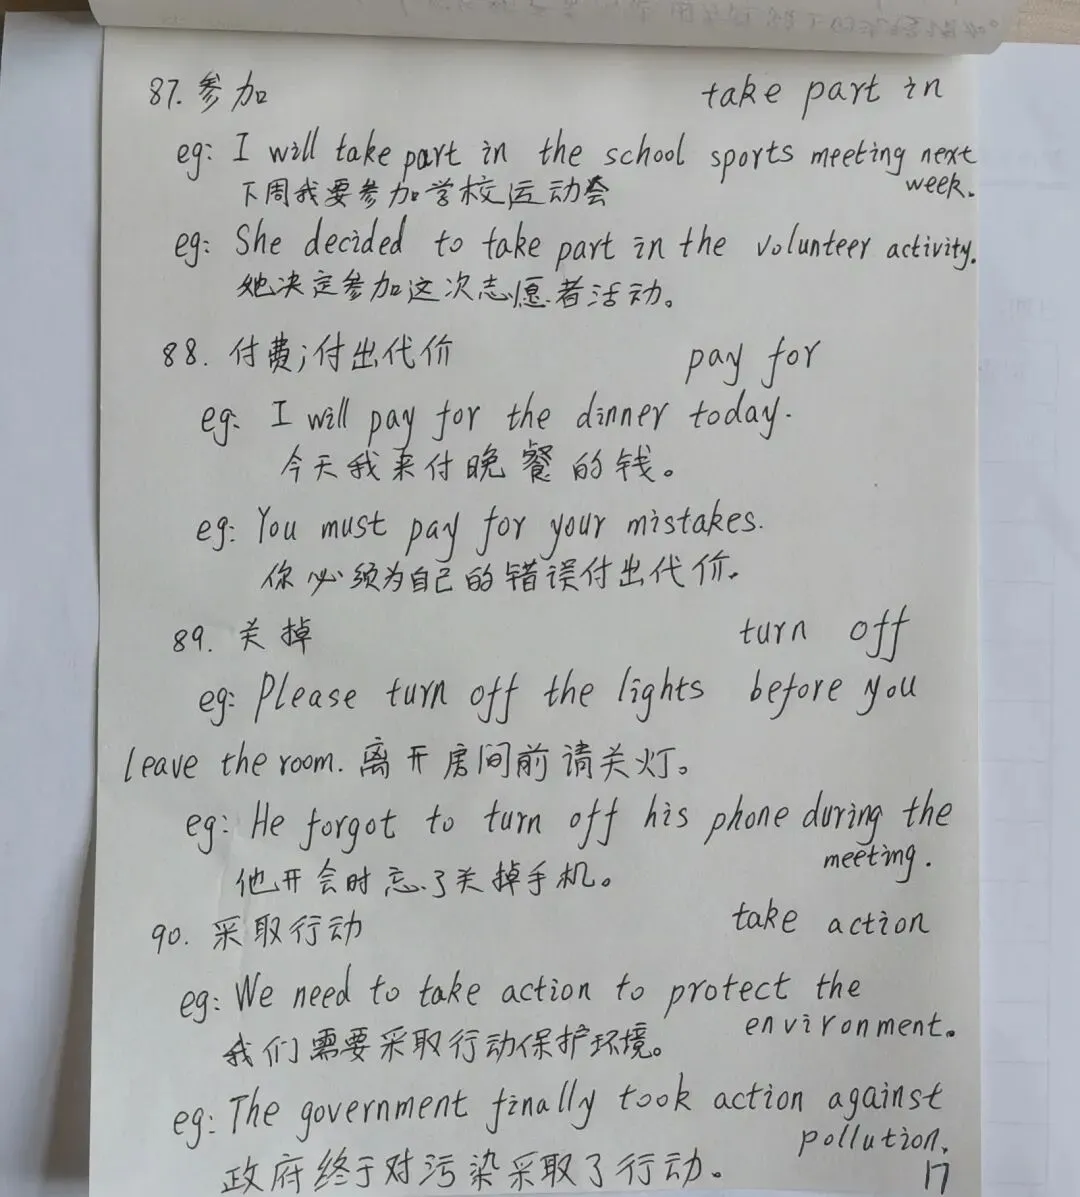 87. 参加 take part in
eg: I will take part in the school sports meeting next
week.
下周我要参加学校运动会
eg: She decided to take part in the volunteer activity.
她决定参加这次志愿者活动。
88. 付费;付出代价 pay for
eg: I will pay for the dinner today.
今天我来付晚餐的钱。
eg: You must pay for your mistakes.
你必须为自己的错误付出代价.
89. 关掉 turn off
eg: Please turn off the lights before you
leave the room. 离开房间前请关灯。
eg: He forgot to turn off his phone during the
meeting.
他开会时忘了关掉手机。
90. 采取行动 take action
eg: We need to take action to protect the
environment.
我们需要采取行动保护环境。
eg: The government finally took action against
pollution.
政府终于对污染采取了行动。
17